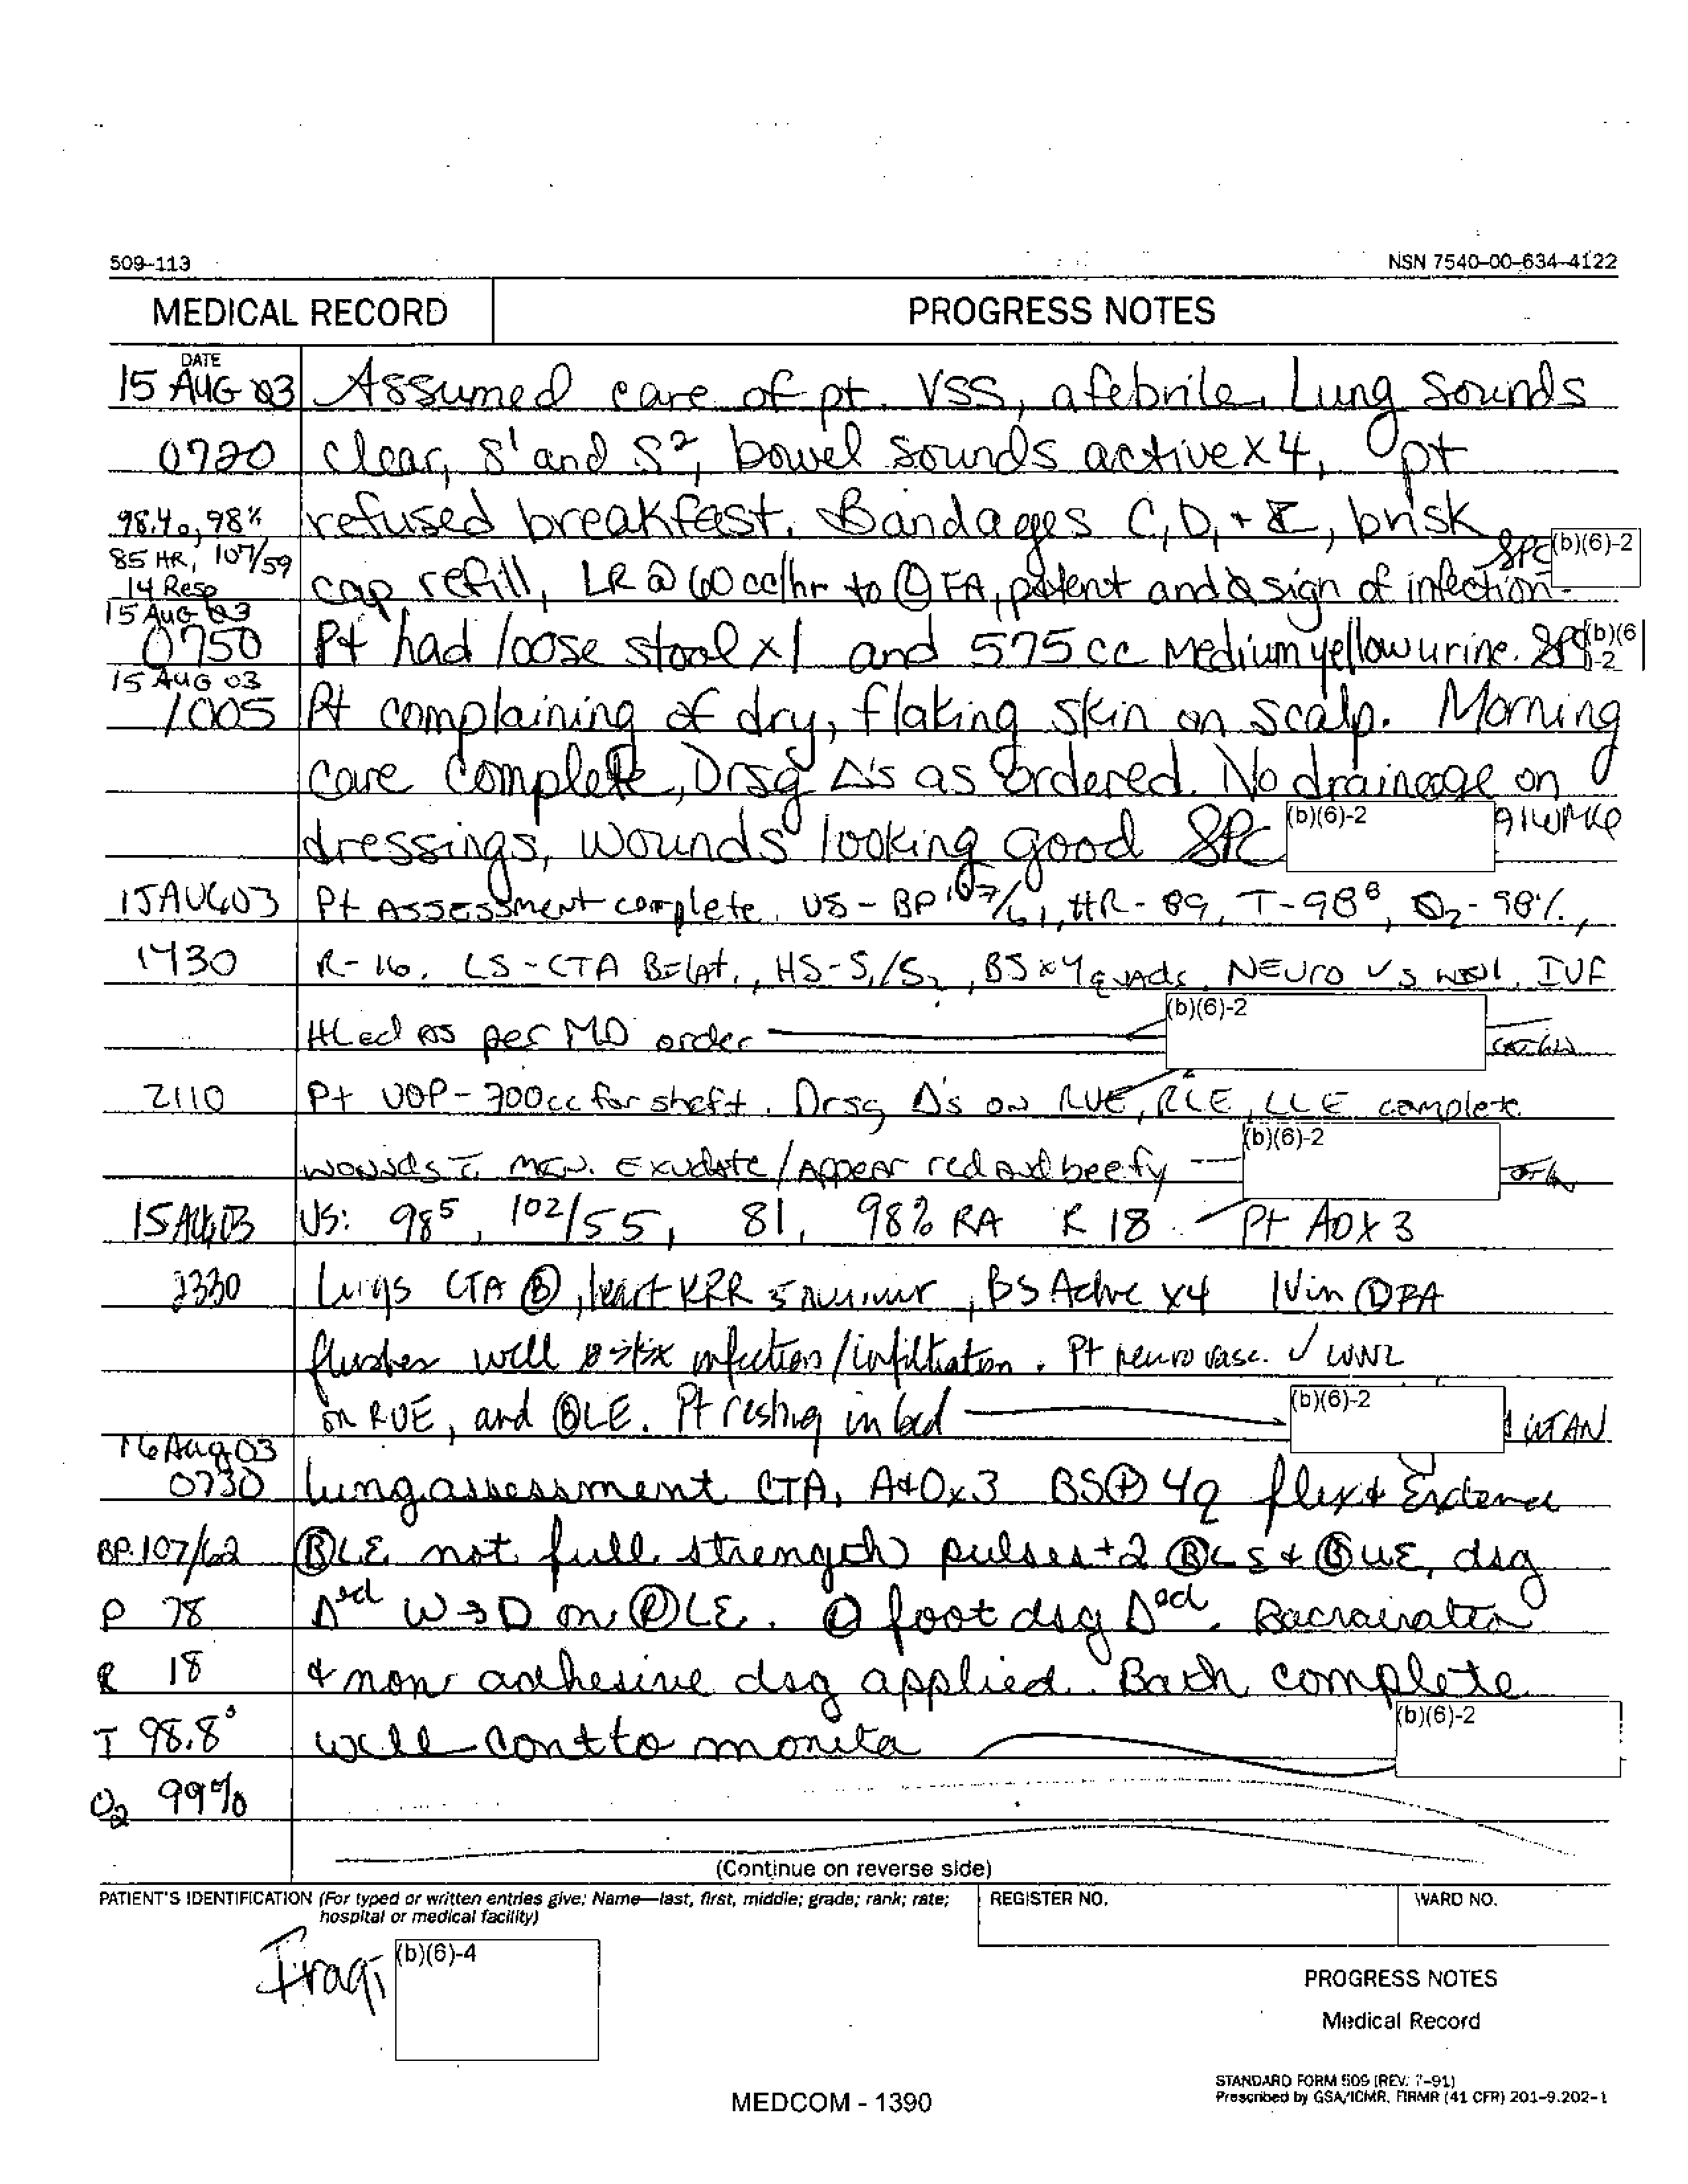 509-113
NSN 7540-00-634-4122
MEDICAL RECORD
PROGRESS NOTES
DATE
15 AUG 03 Assumed care of pt. VSS, afebrile, Lung Sounds
0720 clear, S¹ and S², bowel sounds active x 4, pt
98.4o, 98% refused breakfast. Bandages C, D, + I, brisk
85 HR, 107/59 SPC (b)(6)-2
14 Resp cap refill, LR @ 60 cc/hr to Ⓛ FA, patent and sign of infection
15 Aug 03
0750 Pt had loose stool x1 and 575 cc medium yellow urine. SPC (b)(6)-2
15 AUG 03
1005 Pt complaining of dry, flaking skin on scalp. Morning
care complete, Drsg Δ's as ordered. No drainage on
dressings, wounds looking good SPC (b)(6)-2 91WM6
15AUG03 Pt ASSESSment complete. VS - BP 107/61, HR - 89, T - 98⁶, O₂ - 98%,
1430 R-16. LS - CTA Bilat., HS - S₁/S₂, BS x 4 quads. NEURO VS WNL. IVF
HLed as per MD order (b)(6)-2
2110 Pt UOP - 700cc for shift. Drsg Δ's on RUE, RLE, LLE complete
wounds c̄ min. Exudate / Appear red and beefy (b)(6)-2
15AUG03 VS: 98⁵, 102/55, 81, 98% RA R 18. Pt AOX3
2330 Lungs CTA Ⓑ, heart RRR s̄ murmur, BS Active x4 IV in Ⓛ FA
flushes well infection/infiltration. Pt neuro vasc. √ WNL
on RUE, and ⒷLE. Pt resting in bed (b)(6)-2
16 Aug 03
0730 lung assessment CTA, A+Ox3 BS⊕ 4q flex + Extend
BP. 107/62 ⒷLE not full strength pulses +2 Ⓑ LS + ⒷUE, dsg
P 78 Δed W→D on ⓇLE. Ⓛ foot dsg Δed. Bacracin
R 18 + non adhesive dsg applied. Bath complete
T 98.8° will cont to monitor (b)(6)-2
O₂ 99%
(Continue on reverse side)
PATIENT'S IDENTIFICATION (For typed or written entries give: Name—last, first, middle; grade; rank; rate;
hospital or medical facility)
REGISTER NO.
WARD NO.
Iraqi (b)(6)-4
PROGRESS NOTES
Medical Record
STANDARD FORM 509 (REV. 7-91)
Prescribed by GSA/ICMR, FIRMR (41 CFR) 201-9.202-1
MEDCOM - 1390